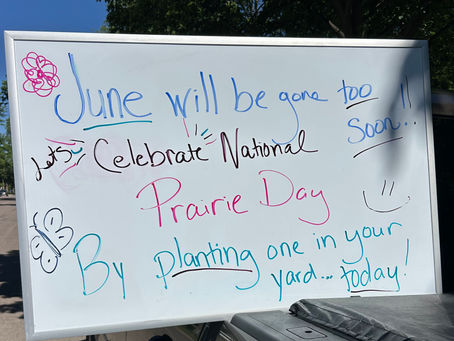 June will be gone too
soon!!
Let's Celebrate National
Prairie Day
By planting one in your
yard... today!